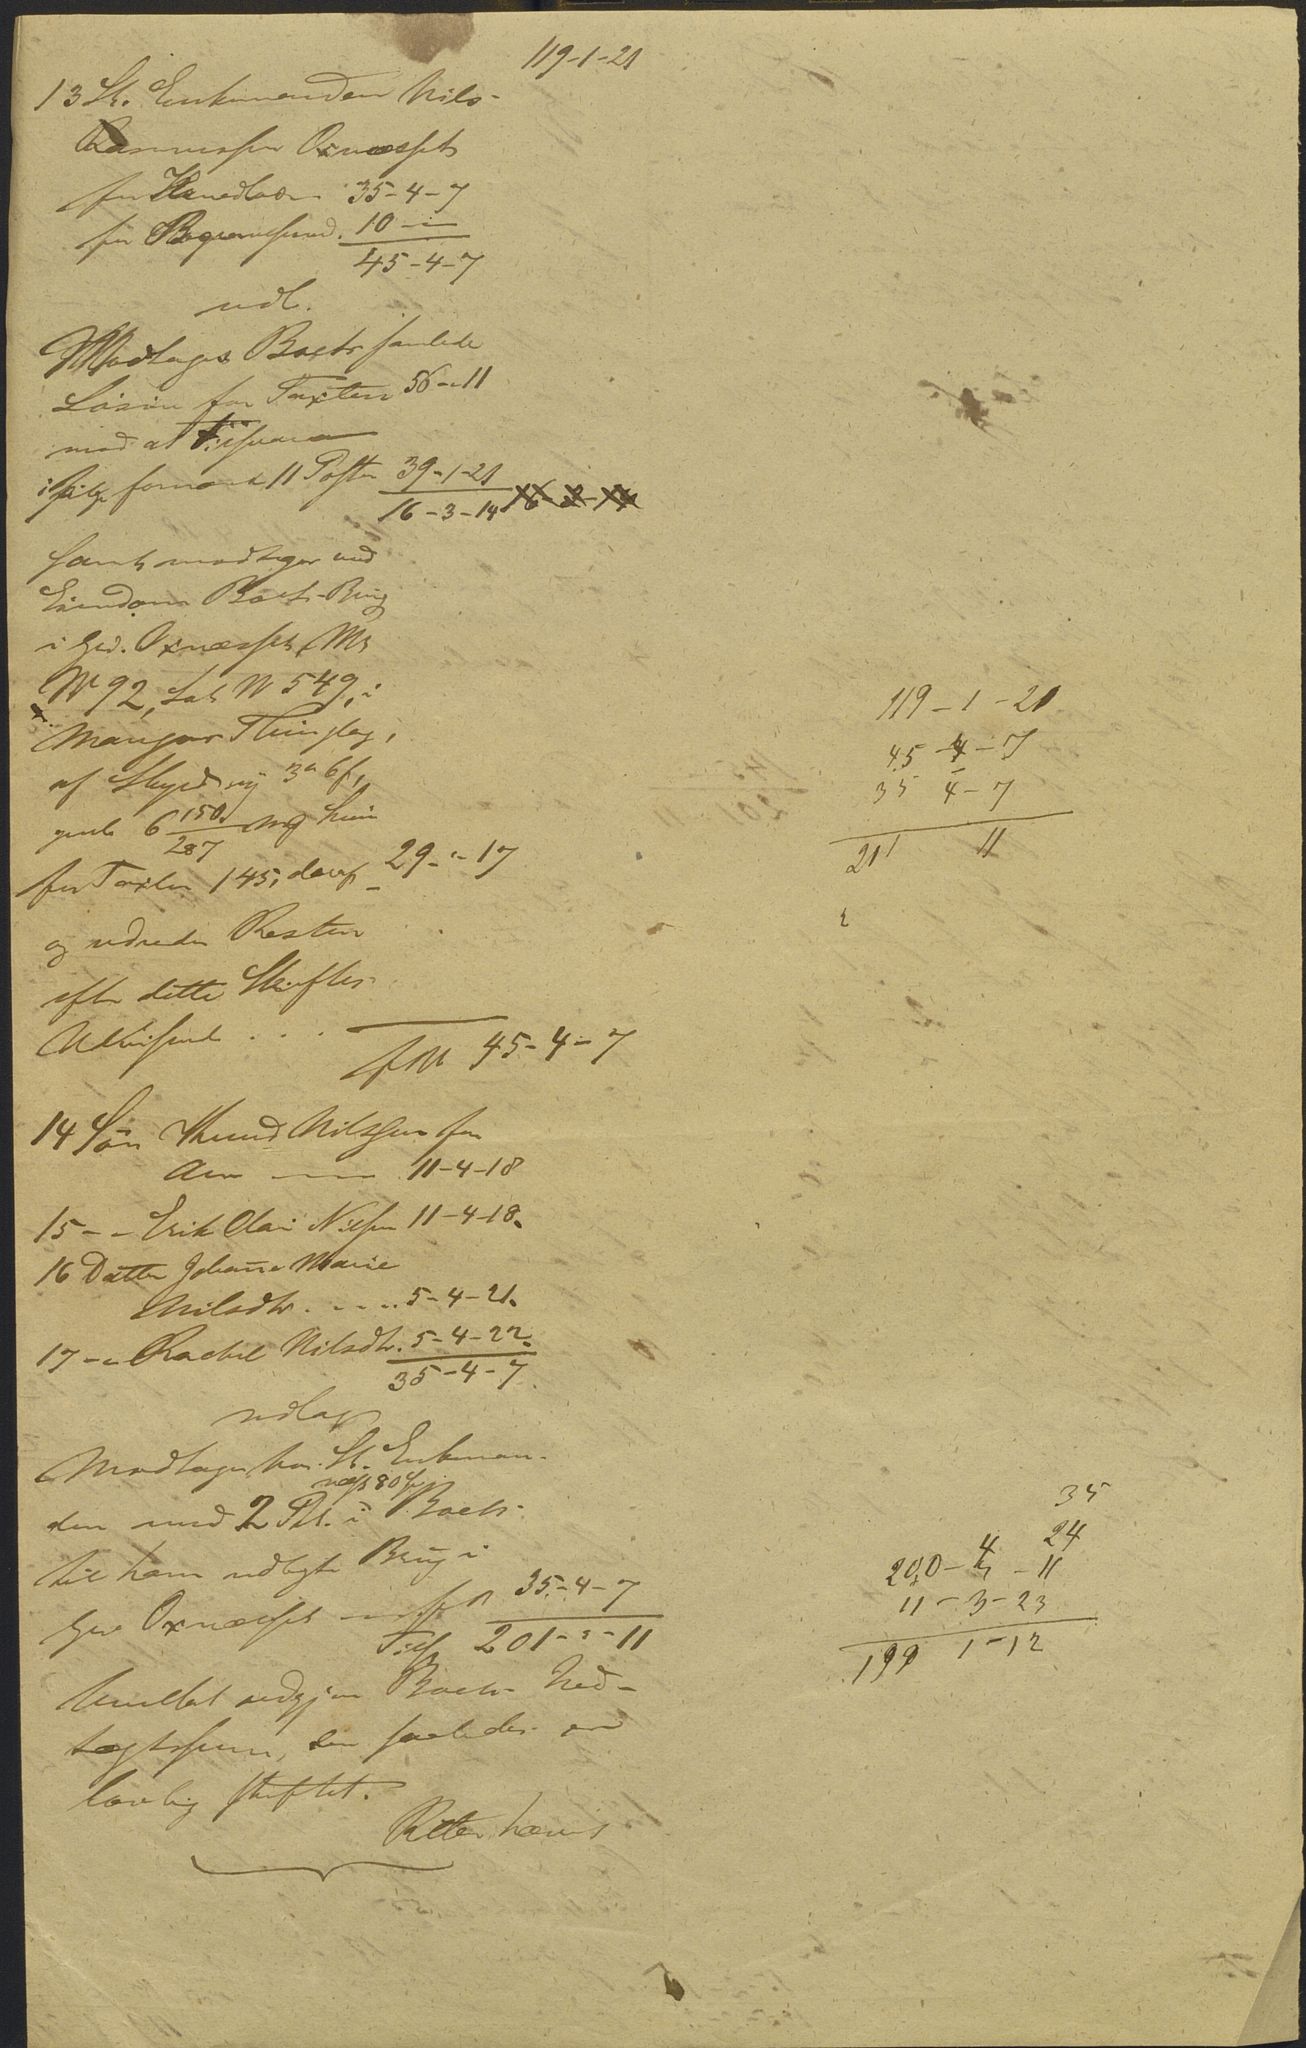 119-1-21
13 St. Enkemanden Nils
Rasmussen Oxnæsset
for Hovedlod 35-4-7
for Begravelsesud. 10 -"-
45-4-7
udl.
Modtager Boets samlede
Løsøre for Taxten 56-"-11
mod at
ifølge foranst. 11 Poster 39-1-21
16-3-14
samt modtager ved
Eiendom Boets Brug
i Grd. Oxnæsset, Mt
N 92, Løb N 549, i
Manger Thinglag,
af Skyld ny 3 o 6 f,
gml. 6 150/287 mrk
for Taxten 145, deraf 29-"-17
og udreder Resten
efter dette Skiftes
Udvisende . . .
45-4-7
14 Søn Knud Nilssen for
Arv 11-4-18
15 - " - Erik Olai Nilssen 11-4-18
16 Datter Johanne Marie
Nilsdtr. . . . . 5-4-21
17 - " - Rachel Nilsdtr. 5-4-22
35-4-7
udlag
Modtager hos St. Enkeman-
den med 2 Pr. i Boets
til ham udlagte Brug i
Grd Oxnæsset 35-4-7
Tils 201-"-11
Boets Ned-
som saaledes er
lovlig skiftet.
119 - 1 - 21
45 - 4 - 7
35 4 - 7
201 11
35
24
200 - 4 - 11
11 - 3 - 23
199 1 - 12